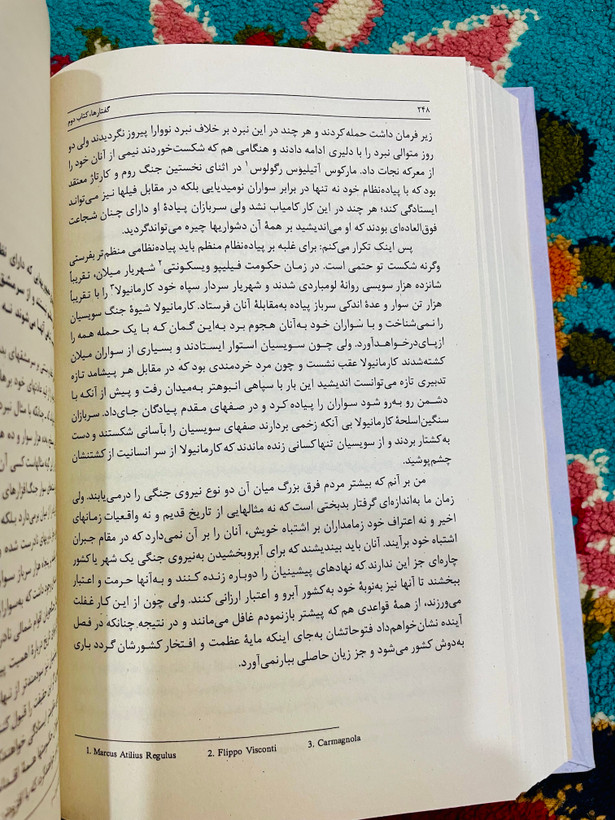 ۲۴۸
گفتارها، کتاب دوم
زیر فرمان داشت حمله کردند و هر چند در این نبرد بر خلاف نبرد نووارا پیروز نگردیدند ولی دو
روز متوالی نبرد را با دلیری ادامه دادند و هنگامی هم که شکست خوردند نیمی از آنان خود را
از معرکه نجات داد. مارکوس آتیلیوس رگولوس۱ در اثنای نخستین جنگ روم و کارتاژ معتقد
بود که با پیاده‌نظام خود نه تنها در برابر سواران نومیدیایی بلکه در مقابل فیلها نیز می‌تواند
ایستادگی کند؛ هر چند در این کار کامیاب نشد ولی سربازان پیادهٔ او دارای چنان شجاعت
فوق‌العاده‌ای بودند که او می‌اندیشید بر همهٔ آن دشواریها چیره می‌تواندگردید.
پس اینک تکرار می‌کنم: برای غلبه بر پیاده‌نظام منظم باید پیاده‌نظامی منظم‌تر بفرستی
وگرنه شکست تو حتمی است. در زمان حکومت فیلیپو ویسکونتی۲ شهریار میلان، تقریباً
شانزده هزار سویسی روانهٔ لومباردی شدند و شهریار سردار سپاه خود کارمانیولا۳ را با تقریباً
هزار تن سوار و عدهٔ اندکی سرباز پیاده به‌مقابلهٔ آنان فرستاد. کارمانیولا شیوهٔ جنگ سویسیان
را نمی‌شناخت و با سواران خود به‌آنان هجوم برد به‌این گمان که با یک حمله همه را
ازپای‌درخواهدآورد. ولی چون سویسیان استوار ایستادند و بسیاری از سواران میلان
کشته‌شدند کارمانیولا عقب نشست و چون مرد خردمندی بود که در مقابل هر پیشامد تازه
تدبیری تازه می‌توانست اندیشید این بار با سپاهی انبوهتر به‌میدان رفت و پیش از آنکه با
دشمن رو به‌رو شود سواران را پیاده کرد و در صفهای مقدم پیادگان جای‌داد. سربازان
سنگین‌اسلحهٔ کارمانیولا بی آنکه زخمی بردارند صفهای سویسیان را بآسانی شکستند و دست
به‌کشتار بردند و از سویسیان تنهاکسانی زنده ماندند که کارمانیولا از سر انسانیت از کشتنشان
چشم‌پوشید.
من بر آنم که بیشتر مردم فرق بزرگ میان آن دو نوع نیروی جنگی را درمی‌یابند. ولی
زمان ما به‌اندازه‌ای گرفتار بدبختی است که نه مثالهایی از تاریخ قدیم و نه واقعیات زمانهای
اخیر و نه اعتراف خود زمامداران بر اشتباه خویش، آنان را بر آن نمی‌دارد که در مقام جبران
اشتباه خود برآیند. آنان باید بیندیشند که برای آبروبخشیدن به‌نیروی جنگی یک شهر یاکشور
چاره‌ای جز این ندارند که نهادهای پیشینیان را دوباره زنده کنند و به‌آنها حرمت و اعتبار
ببخشند تا آنها نیز به‌نوبهٔ خود به‌کشور آبرو و اعتبار ارزانی کنند. ولی چون از این کار غفلت
می‌ورزند، از همهٔ قواعدی هم که پیشتر بازنمودم غافل می‌مانند و در نتیجه چنانکه در فصل
آینده نشان‌خواهم‌داد فتوحاتشان به‌جای اینکه مایهٔ عظمت و افتخار کشورشان گردد باری
به‌دوش کشور می‌شود و جز زیان حاصلی ببارنمی‌آورد.
1. Marcus Atilius Regulus 2. Flippo Visconti 3. Carmagnola